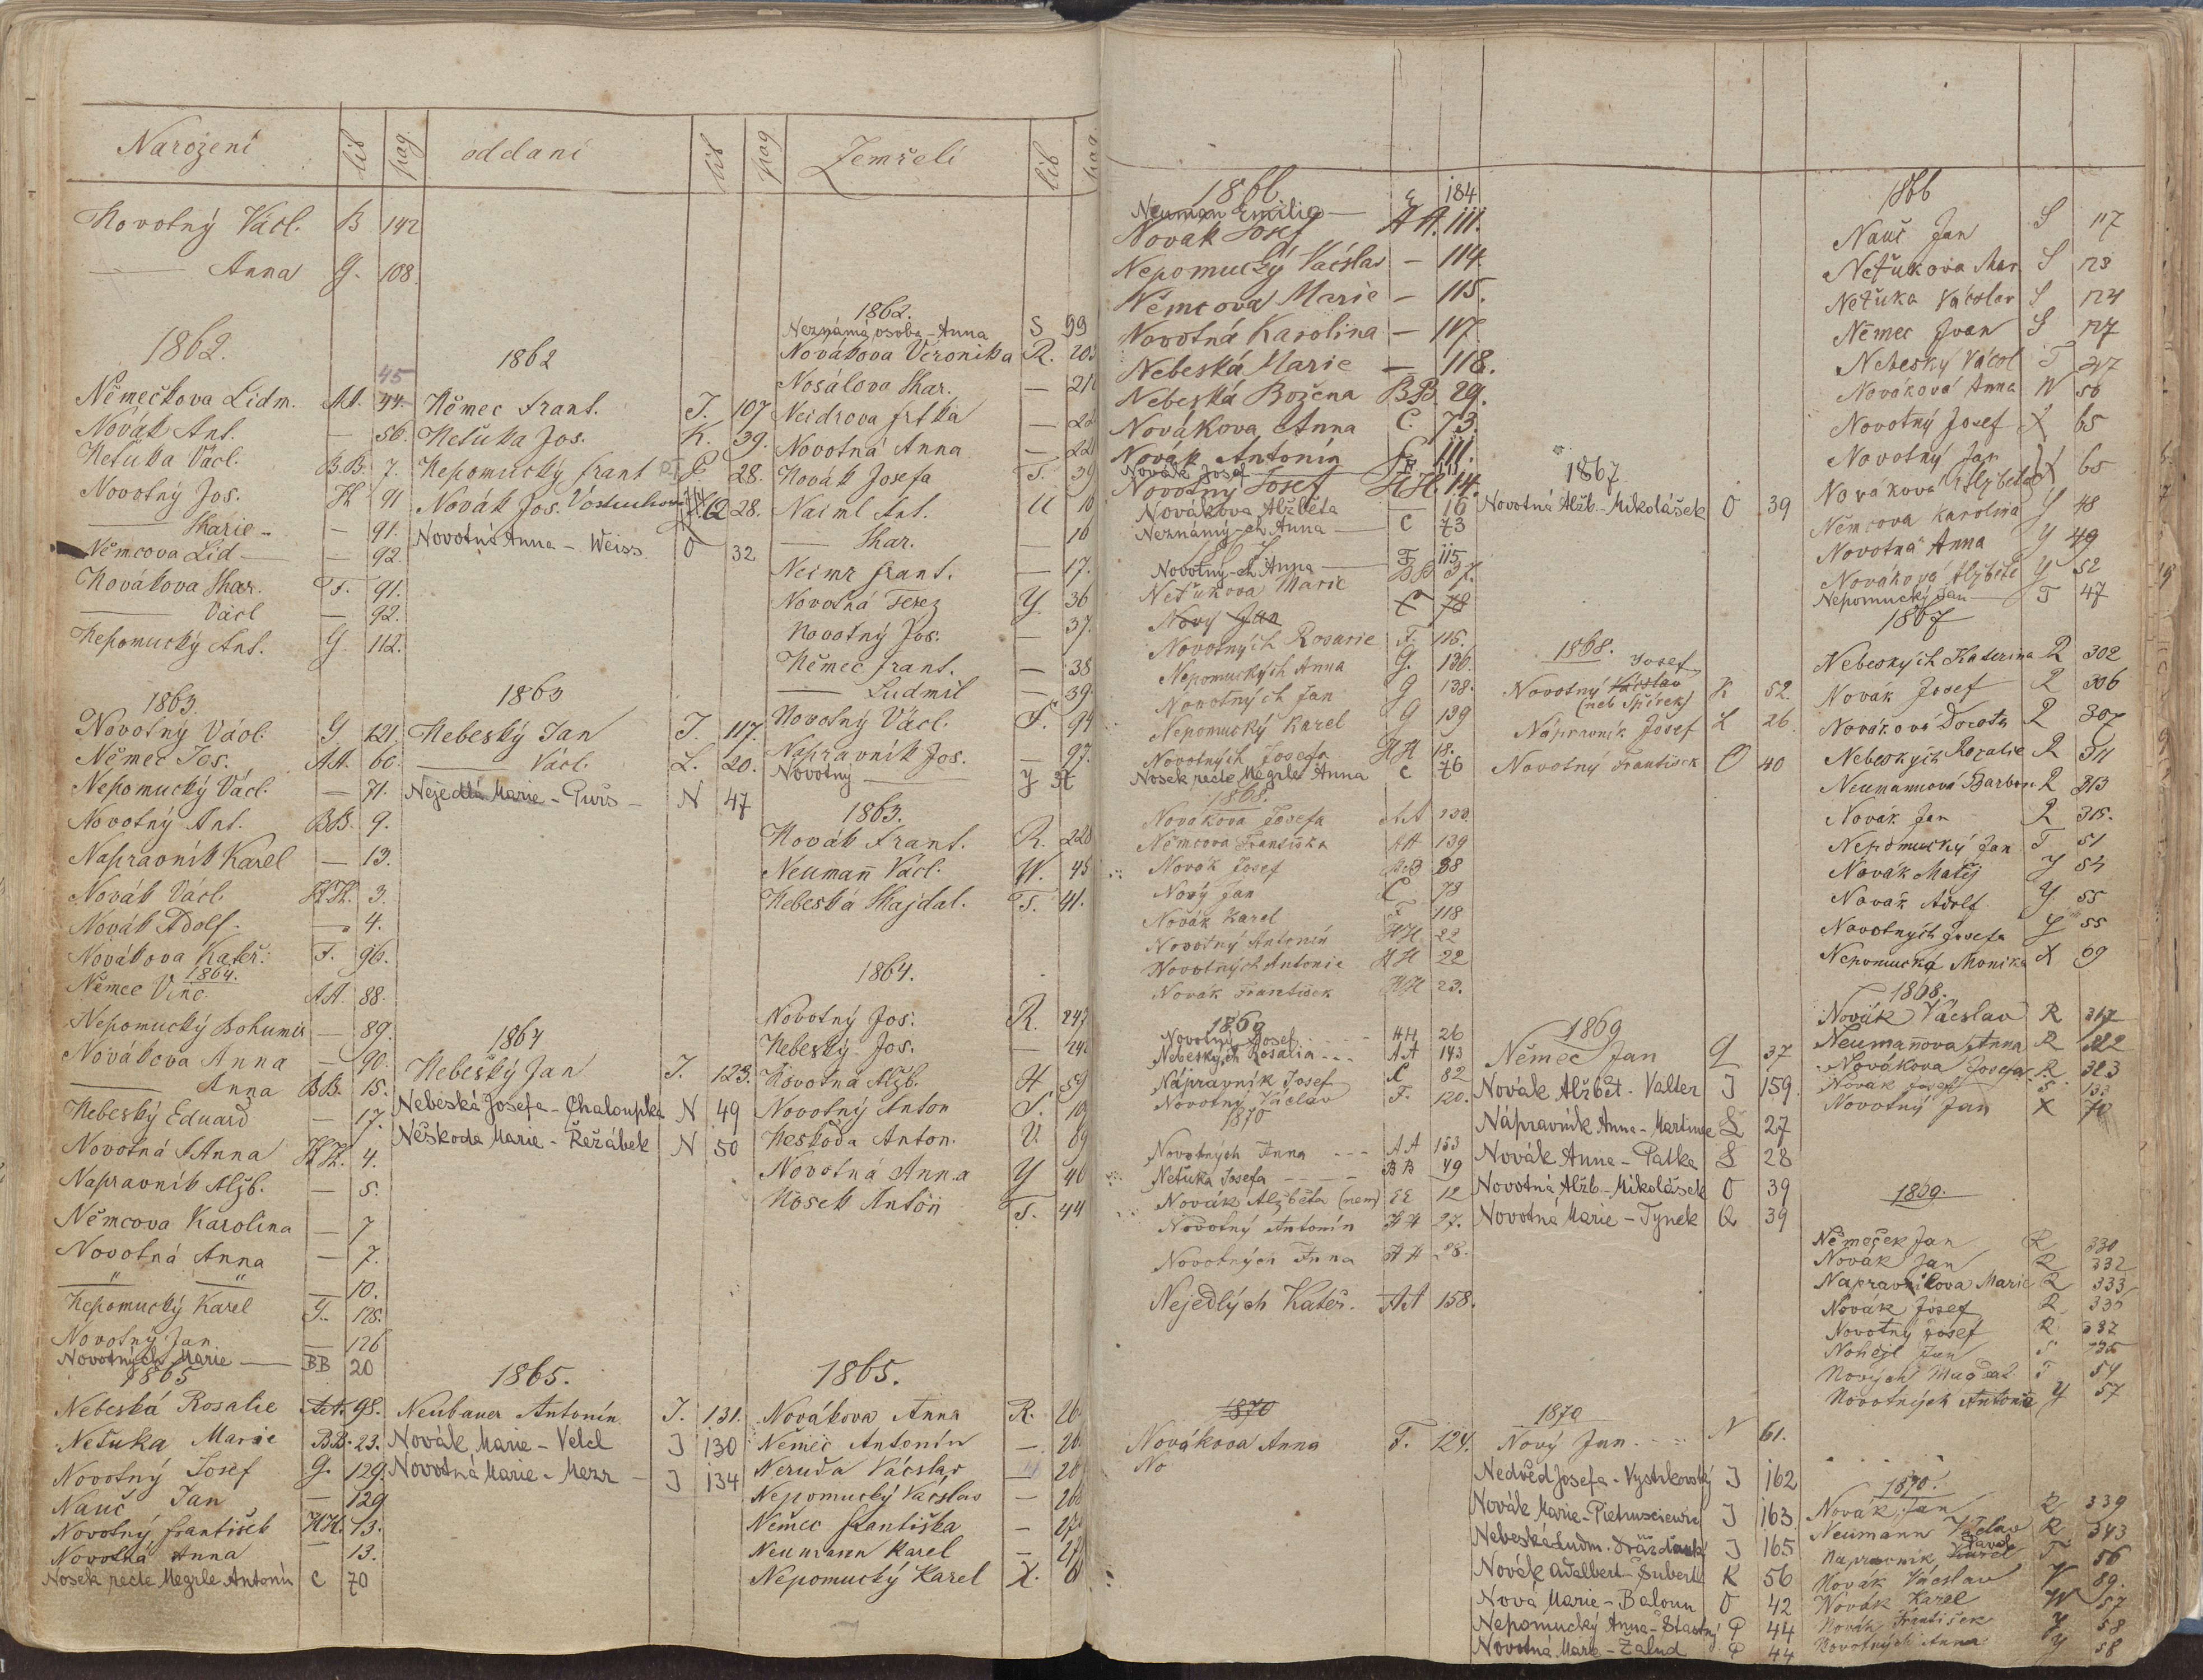 Narozeni lib pag. oddaní lib pag Zemřelí lib pag.
Novotný Václ. B 142
—— Anna G. 108.
1862.
45
Němečkova Lidm. AA. 44.
Novák Ant. — 56.
Netuka Václ. B.B. 7.
Novotný Jos. HH 91
—— Marie — 91.
Němcova Lid — 92.
Novákova Mar. F. 91.
—— Václ — 92.
Nepomucký Ant. G. 112.
1863.
Novotný Václ. G 121.
Němec Jos. AA. 60.
Nepomucký Václ. — 71.
Novotný Ant. BB. 9.
Napravník Karel — 13.
Novák Václ. HH. 3.
Novák Adolf. — 4.
Novákova Kateř. F. 96.
1864.
Němec Vinc. AA. 88.
Nepomucký Bohumir — 89.
Novákova Anna — 90.
—— Anna BB. 15.
Nebeský Eduard — 17.
Novotná Anna HH. 4.
Napravník Alžb. — 5.
Němcova Karolina — 7
Novotná Anna — 7.
—"— —"— — 10.
Nepomucký Karel G. 125.
Novotný Jan — 126
Novotných Marie — BB 20
1865
Nebeská Rosalie AA. 98.
Netuka Marie BB. 23.
Novotný Josef G. 129.
Nauč Jan — 129.
Novotný František HH. 13.
Novotná Anna — 13.
Nosek recte Megrle Antonín C 70
1862
Němec Frant. J. 107
Netuka Jos. K. 39.
Nepomucký Frant P. 28.
Novák Jos. Q 28.
Novotná Anna - Weiss O 32
1863
Nebeský Jan J. 117.
—— Václ. L. 20.
Nejedlá Marie - Purš - N 47
1864
Nebeský Jan J. 123.
Nebeská Josefa - Chaloupka N 49
Neškoda Marie - Řežábek N 50
1865.
Neubauer Antonín J. 131.
Novák Marie - Velcl J 130
Novotná Marie - Mezr - J 134
1862.
Neznámá osoba - Anna S 99
Novákova Veronika R. 20
Nosálova Mar. — 21
Neidrova — 22
Novotná Anna — 22
Novák Josefa T. 39
Naiml Ant. U 10
—— Mar. — 10
Neimr Frant. — 17.
Novotná Terez Y 36
Novotný Jos. — 37.
Němec Frant. — 38
—— Ludmil — 39.
Novotný Václ. S. 94
Napravník Jos. — 97.
Novotný —— Y 37
1863.
Novák Frant. R. 228
Neumann Václ. W. 45
Nebeská Majdal. T. 41.
1864.
Novotný Jos. R. 24
Nebeský Jos. — 24
Novotná Alžb. H 59
Novotný Anton S. 10
Neškoda Anton. V. 89
Novotná Anna Y 40
Nosek Anton T. 44
1865.
Novákova Anna R. 26
Němec Antonín —. 26
Neruda Václav — 26
Nepomucký Vácslav — 26
Němec Františka — 27
Neumann Karel — 27
Nepomucký Karel X. 6
1866
Neuman Emilie — E 184
Novák Josef AA. 111.
Nepomucký Vácslav — 114.
Němcova Marie — 115.
Novotná Karolina — 117.
Nebeská Marie — 118.
Nebeská Božena BB. 29.
Novákova Anna C. 73.
Novák Antonín F. 111.
Novák Josef
Novotný Josef HH. 14.
Novákova Alžběta — 16
Neznámý-ch Anna — C 73
1867
Novotný-ch Anna — F 115
Netukova Marie BB 37.
Nový Jan C 78
Novotných Rosarie F. 115.
Nepomuckých Anna G. 136.
Novotných Jan G 138.
Nepomucký Karel G 139
Novotných Josefa HH 18.
Nosek recte Megrle Anna C 76
1868.
Novákova Josefa AA 133.
Němcova Františka AA 139
Novák Josef BB 38
Nový Jan C 78
Novák Karel F 118
Novotný Antonín HH 22
Novotných Antonie HH 22
Novák František HH 23.
1869
Novotný Josef HH 26
Nebeských Rosalia AA 143
Nápravník Josef C 82
Novotný Václav F. 120.
1870
Novotných Anna AA 153
Netuka Josefa BB 49
Novák Alžběta (nem) EE 12
Novotný Antonín HH 27.
Novotných Anna HH 28.
Nejedlých Kateř. AA 158.
1870
Novákova Anna F. 124.
No
1867
Novotná Alžb. - Mikolášek O 39
1868.
Josef
Novotný Václav K 52.
(neb Špírek)
Nápravník Josef L 26.
Novotný František O 40
1869
Němec Jan Q 37
Novák Alžbět. - Valter J 159.
Nápravník Anna - Martinec L 27
Novák Anna - Patka L 28
Novotná Alžb. - Mikolášek O 39
Novotná Marie - Týnek Q 39
1870
Nový Jan N 61.
Nedvěd Josefa - Vystrkovský J 162
Novák Marie - Pietrusciewicz J 163
Nebeská Ludm. - J 165
Novák Adalbert - Šubert K 56
Nová Marie - Baloun O 42
Nepomucký Anna - Šťastný P 44
Novotná Marie - Žalud P 44
1866
Nauč Jan S 117
Netukova Mar. S 123
Netuka Václav S 124
Němec Ivan S 127
Nebeský Václ T 47
Novákova Anna W 50
Novotný Josef X 65
Novotný Jan X 65
Novákova Alžběta Y 48
Němcova Karolina Y 49
Novotná Anna
Novákova Alžběta Y 52
Nepomucký Jan — T 47
1867
Nebeských Katerina R 302
Novák Josef R 306
Nováková Dorota R 307
Nebeských Rozalie R 311
Neumannová Barbora R 313
Novák Jan R 315.
Nepomucký Jan T 51
Novák Matěj Y 54
Novák Adolf Y 55
Novotných Josefa Y 55
Nepomucká Monika X 69
1868.
Novák Vácslav R 317
Neumannova Anna R 322
Novákova Josefa R 323
Novák Josef S. 133.
Novotný Jan X 70
1869.
Němeček Jan R 330
Novák Jan R 332
Napravníkova Marie R 333
Novák Josef R 335
Novotný Josef R 337
Nohejl Jan S 135
Nových T 54
Novotných Antonie Y 57
1870.
Novák Jan R 339
Neumann Václav R 343
Pavel
Napravník Karel T 56
Novák Vácslav V 89.
Novák Karel W 57
Novák František Y 58
Novotných Anna Y 58